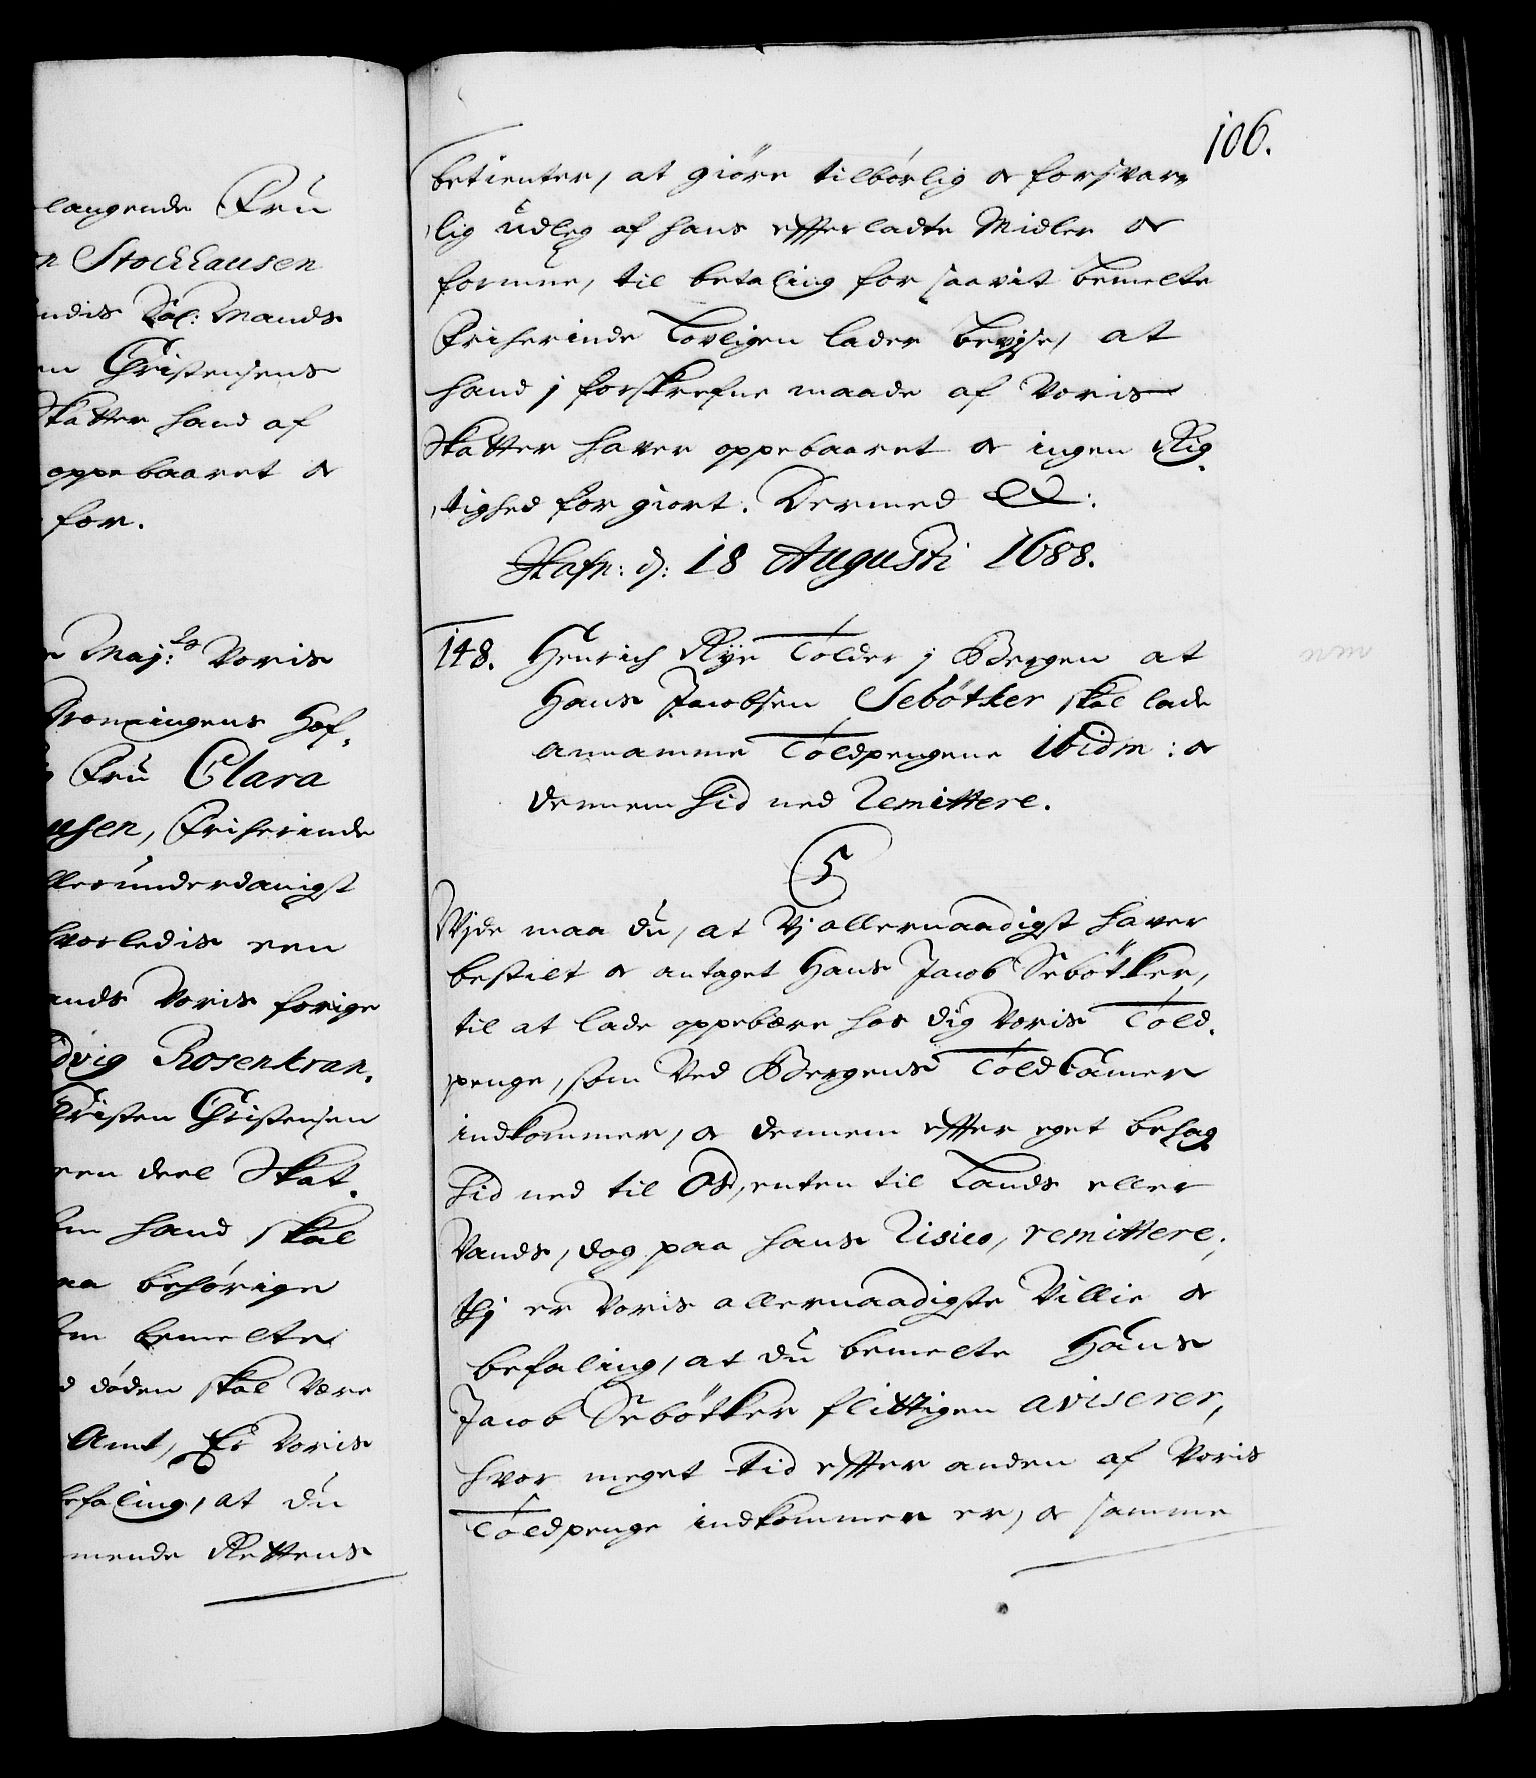 langende Fru
n Stockhausen
ndis Sal: Mands
en Christensens
Skatter hand af
oppebaaret &
for.
e Maj:ts Voris
Dronningens Hof,
Fru Clara
usen, Friherinde
llerunderdanigst
hvorledis een
ands Voris forige
dvig Rosenkran,
Christen Christensen
een deel Skat,
hand skal
aa behørige
bemelte
d døden skal være
Amt, Er Voris
befaling, at du
mende Rettens
106.
betienter, at giöre tilbørlig & forsvar,
lig udleg af hans effterladte Midler &
formue, til betaling for saavit bemelte
Friherinde Lovligen lader bevjse, at
hand j forskrefne maade af Voris
Skatter haver oppebaaret & ingen Rig,
tighed for giort. Dermed &:
Hafn: d: 18 Augusti 1688.
148. Henrich Rÿe Tolder j Bergen at
Hans Jacobsen Sebötker skal lade
annamme Toldpengene ibidm: &
dennem hid ned Remittere.
C5
Vjde maa du, at Vj allernaadigst haver
bestilt & antaget Hans Jacob Sebötker,
til at lade oppebære hos dig Voris Told,
penge, som Ved Bergens Told Camer
indkommer, & dennem effter eget behag
hid ned til Os, enten til Lands eller
Vands, dog paa hans Risico, remittere;
thj er Voris allernaadigste Villie &
befaling, at du bemelte Hans
Jacob Sebötker flittigen aviserer,
hvor meget tid effter anden af Voris
Toldpenge indkommen er, & samme